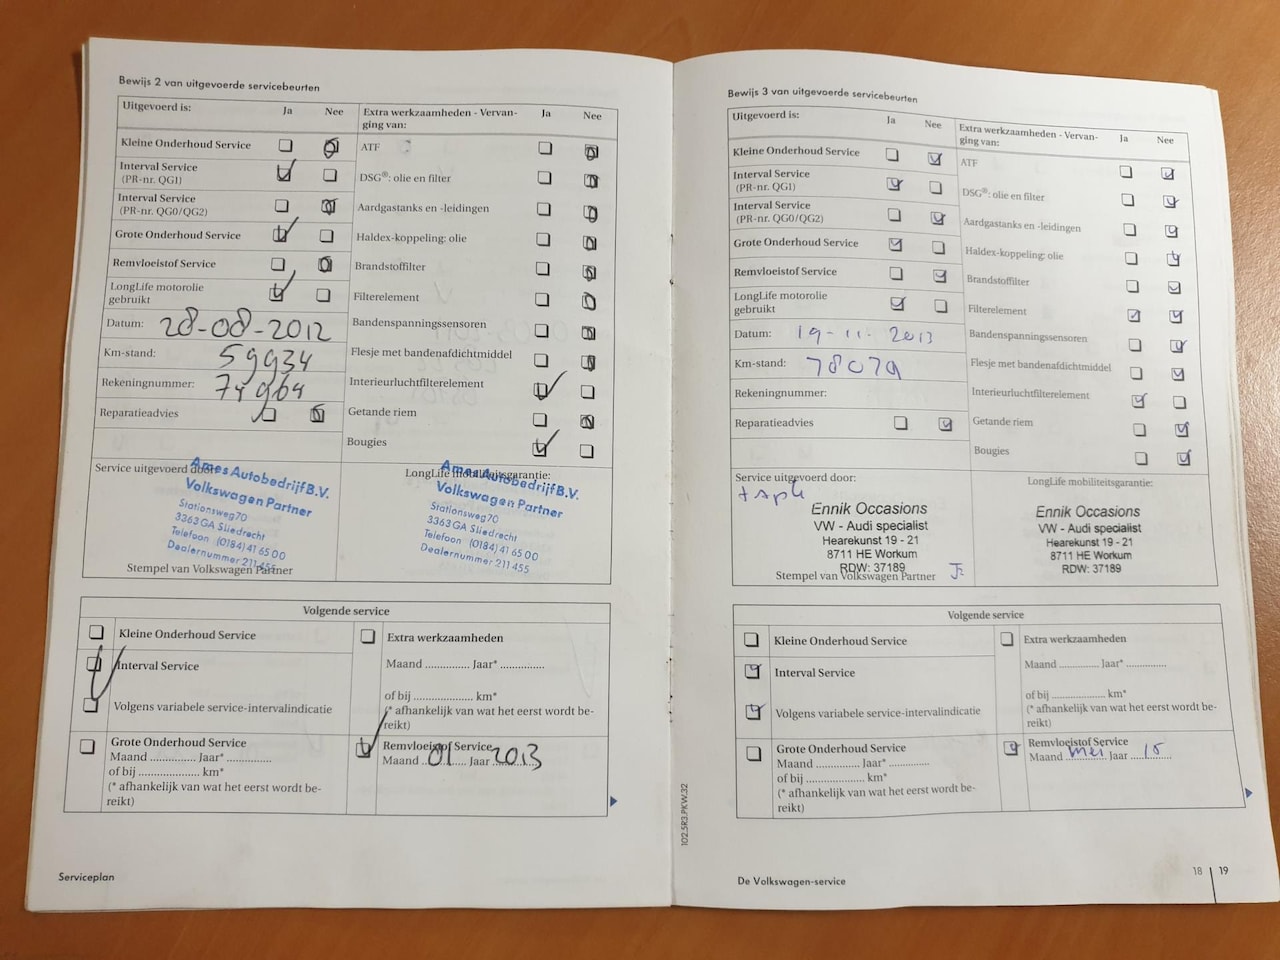 Bewijs 2 van uitgevoerde servicebeurten
Uitgevoerd is: Ja Nee
Kleine Onderhoud Service
Interval Service
(PR-nr. QG1)
Interval Service
(PR-nr. QG0/QG2)
Grote Onderhoud Service
Remvloeistof Service
LongLife motorolie
gebruikt
Datum: 28-08-2012
Km-stand: 59934
Rekeningnummer: 74964
Reparatieadvies
Extra werkzaamheden - Vervan-
ging van: Ja Nee
ATF
DSG®: olie en filter
Aardgastanks en -leidingen
Haldex-koppeling: olie
Brandstoffilter
Filterelement
Bandenspanningssensoren
Flesje met bandenafdichtmiddel
Interieurluchtfilterelement
Getande riem
Bougies
Service uitgevoerd door:
Ames Autobedrijf B.V.
Volkswagen Partner
Stationsweg 70
3363 GA Sliedrecht
Telefoon (0184) 41 65 00
Dealernummer 211 455
Stempel van Volkswagen Partner
LongLife mobiliteitsgarantie:
Ames Autobedrijf B.V.
Volkswagen Partner
Stationsweg 70
3363 GA Sliedrecht
Telefoon (0184) 41 65 00
Dealernummer 211 455
Volgende service
Kleine Onderhoud Service
Interval Service
Volgens variabele service-intervalindicatie
Grote Onderhoud Service
Maand .............. Jaar* ...............
of bij .................... km*
(* afhankelijk van wat het eerst wordt be-
reikt)
Extra werkzaamheden
Maand .............. Jaar* ...............
of bij .................... km*
(* afhankelijk van wat het eerst wordt be-
reikt)
Remvloeistof Service
Maand 01 Jaar 2013
Serviceplan
Bewijs 3 van uitgevoerde servicebeurten
Uitgevoerd is: Ja Nee
Kleine Onderhoud Service
Interval Service
(PR-nr. QG1)
Interval Service
(PR-nr. QG0/QG2)
Grote Onderhoud Service
Remvloeistof Service
LongLife motorolie
gebruikt
Datum: 19-11-2013
Km-stand: 78079
Rekeningnummer:
Reparatieadvies
Extra werkzaamheden - Vervan-
ging van: Ja Nee
ATF
DSG®: olie en filter
Aardgastanks en -leidingen
Haldex-koppeling: olie
Brandstoffilter
Filterelement
Bandenspanningssensoren
Flesje met bandenafdichtmiddel
Interieurluchtfilterelement
Getande riem
Bougies
Service uitgevoerd door:
Ennik Occasions
VW - Audi specialist
Hearekunst 19 - 21
8711 HE Workum
RDW: 37189
Stempel van Volkswagen Partner
LongLife mobiliteitsgarantie:
Ennik Occasions
VW - Audi specialist
Hearekunst 19 - 21
8711 HE Workum
RDW: 37189
Volgende service
Kleine Onderhoud Service
Interval Service
Volgens variabele service-intervalindicatie
Grote Onderhoud Service
Maand .............. Jaar* ...............
of bij .................... km*
(* afhankelijk van wat het eerst wordt be-
reikt)
Extra werkzaamheden
Maand .............. Jaar* ...............
of bij .................... km*
(* afhankelijk van wat het eerst wordt be-
reikt)
Remvloeistof Service
Maand mei Jaar 15
102.5R3.PKW.32
De Volkswagen-service
18 | 19